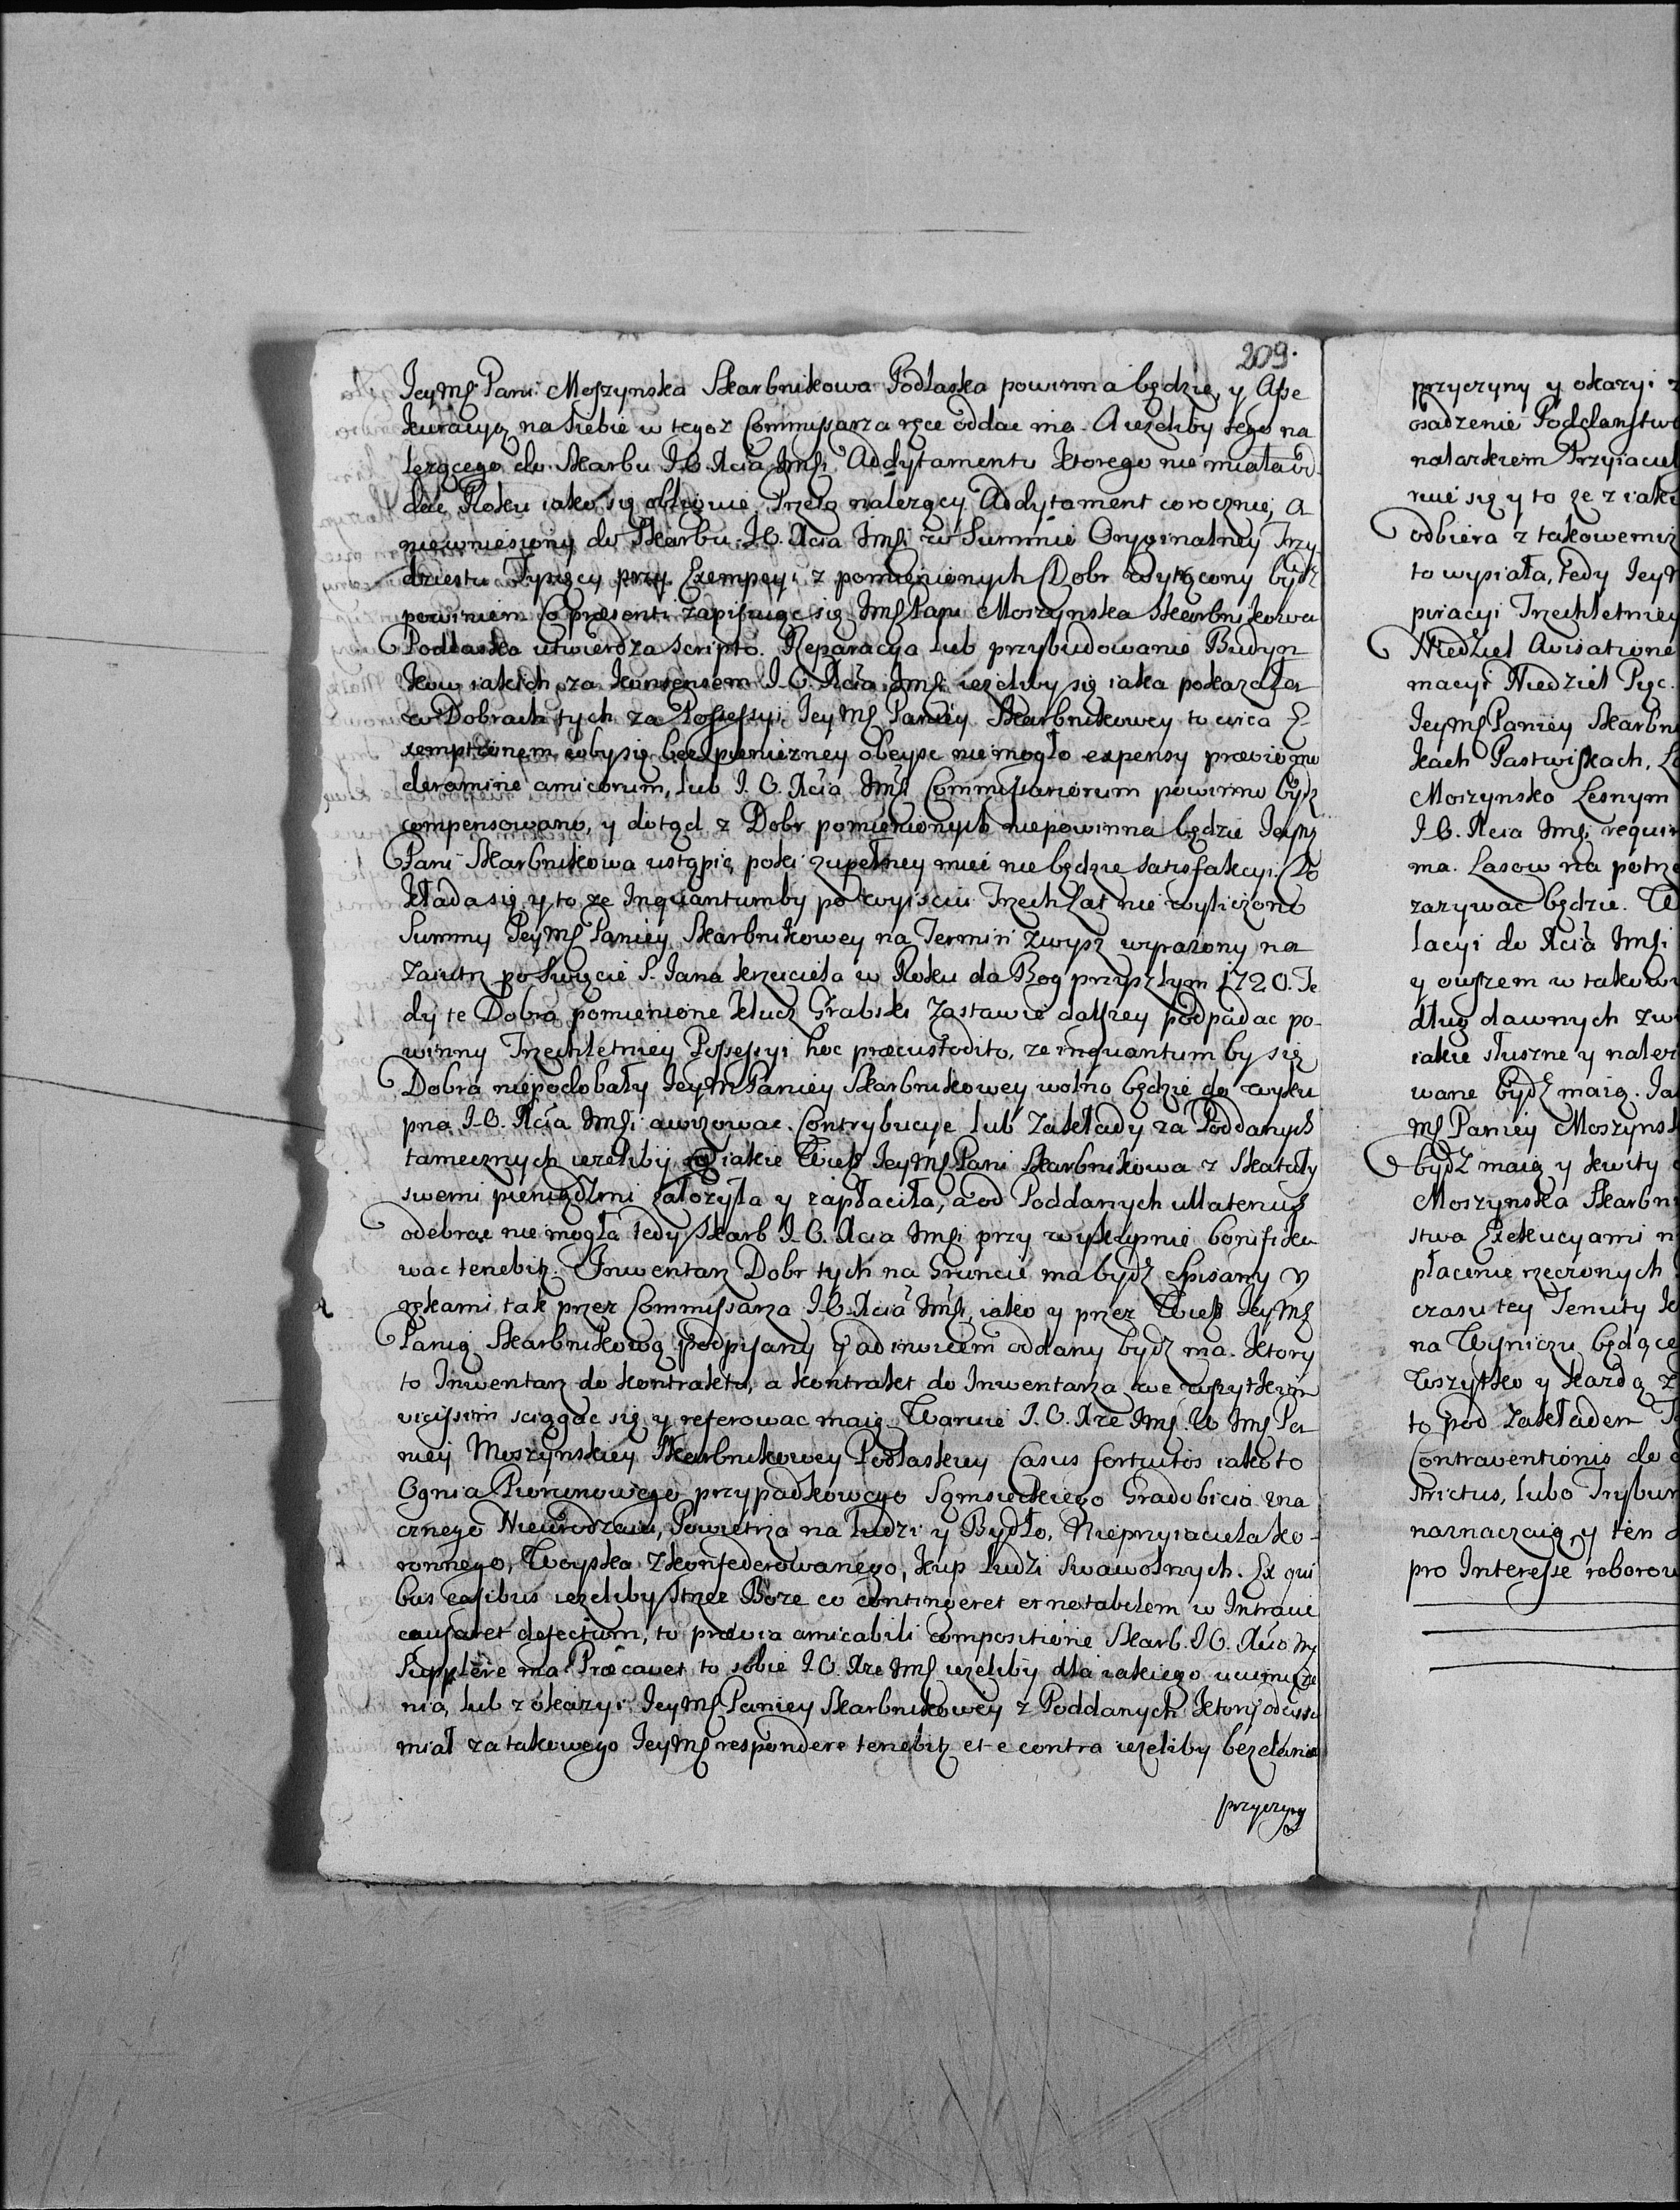 209.
JeyMś Pani Moszynska Skarbnikowa Podlaska powinna będzie, y Asse
kuracyą na siebie w tegoz Commissarza ręce oddac ma. A iezeliby tego na
lezącego do Skarbu J.O. Xcia Jmśi Addytamentu ktorego nie miała od
dac Roku iako się obliguie Trzeto nalezący Addytament corocznie, a
niewniesiony do Skarbu J.O. Xcia Jmśi w Summie Oryginalney Trzy
dziestu Tysięcy przy Exempcyi z pomienionych Dobr wytrącony bydz
powinien Co præsenti zapisuiąc się Jmś Pani Moszynska Skarbnikowa
Podlaska utwierdza scripto. Reparacya lub przybudowanie Budyn
kow iakich za konsensem J.O. Xcia Jmśi iezeliby się iaka pokazała
w Dobrach tych za Possessyi JeyMś Paniey Skarbnikowey to circa E
xemptionem coby się bez pieniezney obeysc niemogło expensy prævio mo
deramine amicorum, lub J.O. Xcia Jmśi Commissariorum powinno bydz
compensowano, y dotąd z Dobr pomienionych niepowinna będzie Jeymś
Pani Skarbnikowa ustąpic, poki zupełney miec nie będzie satisfakcyi. Do
kłada się y to ze Inquantumby po wyisciu Trzech Lat nie wyliczono
Summy JeyMś Paniey Skarbnikowey na Termin zwysz wyrazony na
zaiutrz po Swięcie S. Jana krzciciela w Roku da Bog przyszłym 1720. Te
dy te Dobra pomienione klucz Grabski zastawie dalszey podpadac po-
winny Trzechletniey Possessyi hoc præcustodito, ze inquantum by się
Dobra niepodobały JeyMś Paniey Skarbnikowey wolno będzie do wyku
pna J.O. Xcia Jmśi awizowac. Contrybucye lub Zakłady za Poddanych
tamecznych iezeliby iakie Wieś JeyMś Pani Skarbnikowa z Skatuły
swemi pieniądzmi załozyła y zapłaciła, a od Poddanych ullatenus
odebrac nie mogła tedy Skarb J.O. Xcia Jmśi przy wystąpnie bonifiko
wac tenebit. Inwentarz Dobr tych na Gruncie ma bydz Spisany y
rękami tak przez Commissarza J.O. Xcia Jmśi, iako y przez JeyMś
Panią Skarbnikową podpisany y ad invicem oddany bydz ma. Ktory
to Inwentarz do kontraktu, a kontrakt do Inwentarza we wszytkim
vicissim sciągac się y referowac maią. Waruie J.O. Xze Jmś. W Jmś Pa
niey Moszynskiey Skarbnikowey Podlaskiey Casus fortuitos iako to
Ognia Piorunowego przypadkowego Sąmsiedzkiego Gradobicia zna
cznego Nieurodzaiu, Powietrza na Ludzi y Bydło, Nieprzyiaciela ko-
ronnego, Woyska Zkonfederowanego, kup Ludzi Swawolnych. Ex qui
bus casibus iezeliby Strzez Boze co contingeret et notabilem w Intracie
causaret defectum, to prævia amicabili compositione Skarb. J.O. Xcia Jm
Supplere ma. Præcavet to sobie J.O. Xze Jmś iezeliby dla iakiego uciemięze
nia, lub z okazyi JeyMś Paniey Skarbnikowey z Poddanych ktory
miał za takowego JeyMś respondere tenebit et e contra iezeliby bezdania
przyczyny
przyczyny y okazyi
osadzenie Poddanstwo
nalazkiem Przyiaciel
ruie się y to ze z iaki
odbiera z takowemiz
to wysiała, tedy JeyM
piracyi Trzechletniey
Niedziel Avisatione
macyi Niedziel Pięc.
JeyMś Paniey Skarbn
kach Pastwiskach,
Moszynska Lesnym
J.O. Xcia Jmśi requir
ma. Lasow na potrze
zazywac będzie.
lacyi do Xcia Jmśi
y owszem w takow
dług dawnych zw
iakie słuszne y nalez
wane bydz maią. Ja
Mś Paniey Moszynsk
bydz maią y kwity
Moszynska Skarbn
stwa Exekucyami n
płacenie rzeczonych
czasu tey Tenuty
na Wyniczu będące
Wszytko y kazdą z
to pod Zakładem
Contraventionis do
strictus, lubo Trybun
naznaczaią, y ten
pro Interesse roborow